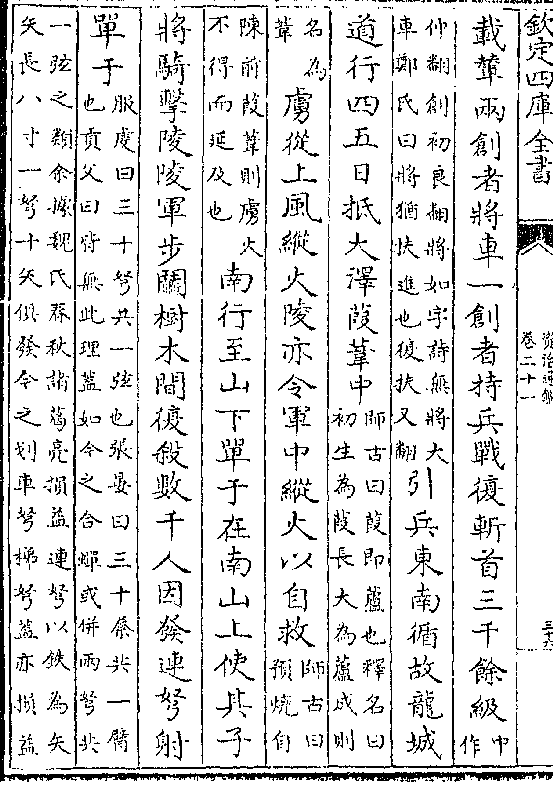 欽定四庫全書
資治通鑑
卷二十一
載輦兩創者將車一創者持兵戰復斬首三千餘級中作
仲翻創初良翻將如字詩無將大
車鄭氏曰將猶扶進也復扶又翻
引兵東南循故龍城
道行四五日抵大澤葭葦中
師古曰葭即蘆也釋名曰
初生為葭長大為蘆成則
名為
葦
虜從上風縱火陵亦令軍中縱火以自救
師古曰
預燒自
陳前葭葦則虜火
不得而延及也
南行至山下單于在南山上使其子
將騎擊陵陵軍步鬭樹木間復殺數千人因發連弩射
單于
服虔曰三十弩共一弦也張晏曰三十絭共一臂
也貢父曰皆無此理蓋如今之合蟬或併兩弩共
一弦之類余據魏氏春秋諸葛亮損益連弩以鉄為矢
矢長八寸一弩十矢俱發今之划車弩梯弩蓋亦損益